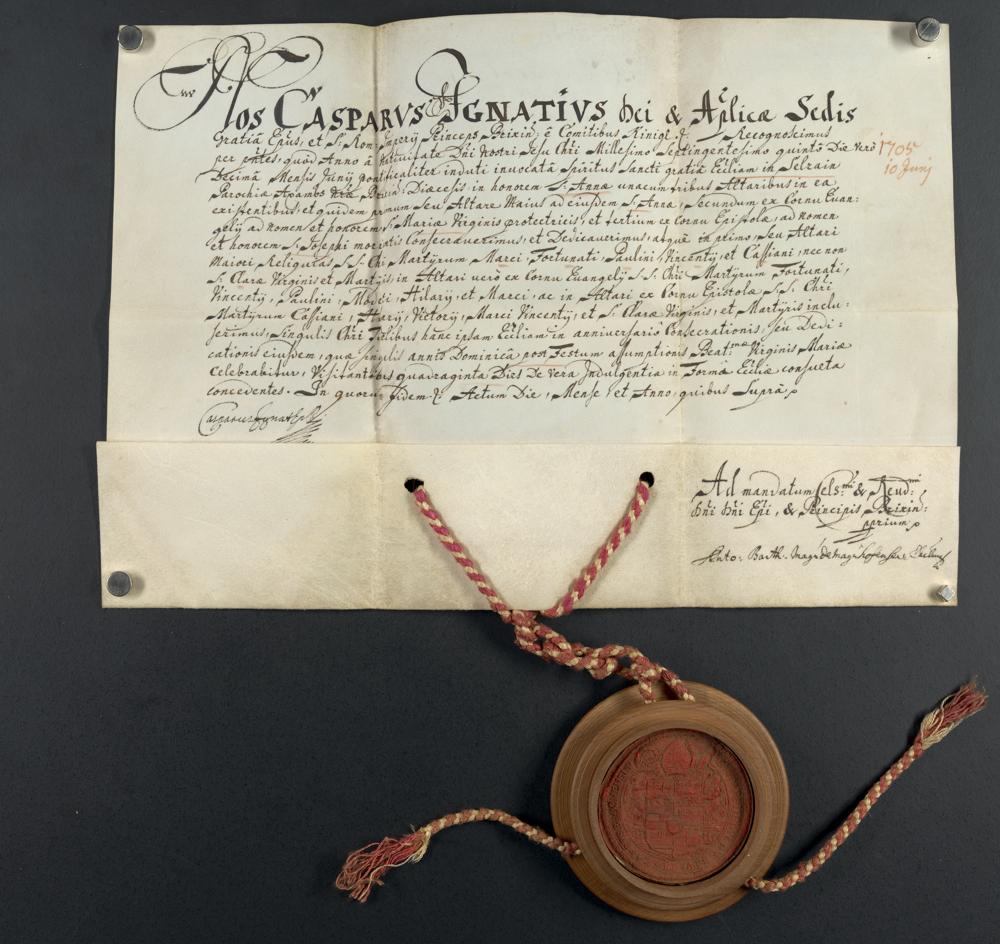 Nos CASPARVS IGNATIVS Dei & Aplicæ Sedis
Gratiâ Epûs, et S: Rom: Imperÿ Princeps Brixin: è Comitibus Kinigl &: Recognoscimus
per pñtes, quod Anno à Nativitate Dñi Nostri Jesu Chri Millesimo Septingentesimo quintô Die verò
Decimâ Mensis Junÿ pontificaliter induti invocatâ Spiritûs Sancti gratiâ Ecliam in Selrain
Parochiæ Axambs Nræ Brixin: Diæcesis in honorem S: Annæ unacum tribus Altaribus in ea
existentibus, et quidem primum seu Altare Maius ad eiusdem S: Annæ, Secundum ex Cornu Euan-
gelÿ ad nomen et honorem S: Mariæ Virginis protectricis, et tertium ex Cornu Epistolæ, ad nomen
et honorem S: Josephi Consecraverimus, et Dedicaverimus, atque in primo, seu Altari
Maiori Reliquias S.S. Chri Martyrum Marci, Fortunati, Paulini, Vincentÿ, et Cassiani, nec non
S: Claræ Virginis et Martyris, in Altari verò ex Cornu Euangelÿ S.S. Chri Martyrum Fortunati,
Vincentÿ, Paulini, Hilarÿ, et Marci, ac in Altari ex Cornu Epistolæ S.S. Chri
Martyrum Cassiani, Hilarÿ, Victorÿ, Marci Vincentÿ, et S: Claræ Virginis, et Martyris inclu-
serimus, singulis Chri Fidelibus hanc ipsam Ecliam in anniversariô Consecrationis, seu Dedi-
cationis eiusdem, quæ singulis annis Dominicâ post Festum assumptionis Beat:mæ Virginis Mariæ
celebrabitur, Visitantibus quadraginta Dies De vera Indulgentia in Forma Ecliæ consueta
concedentes. In quorum fidem &: Actum Die, Mense, et Anno, quibus Suprà
1705
10 Junÿ
Casparus Ignatius
Ad mandatum Cels:mi & Reud:mi
Dñi Dñi Epi, & Principis Brixin:
pprium
Anto: Barth: